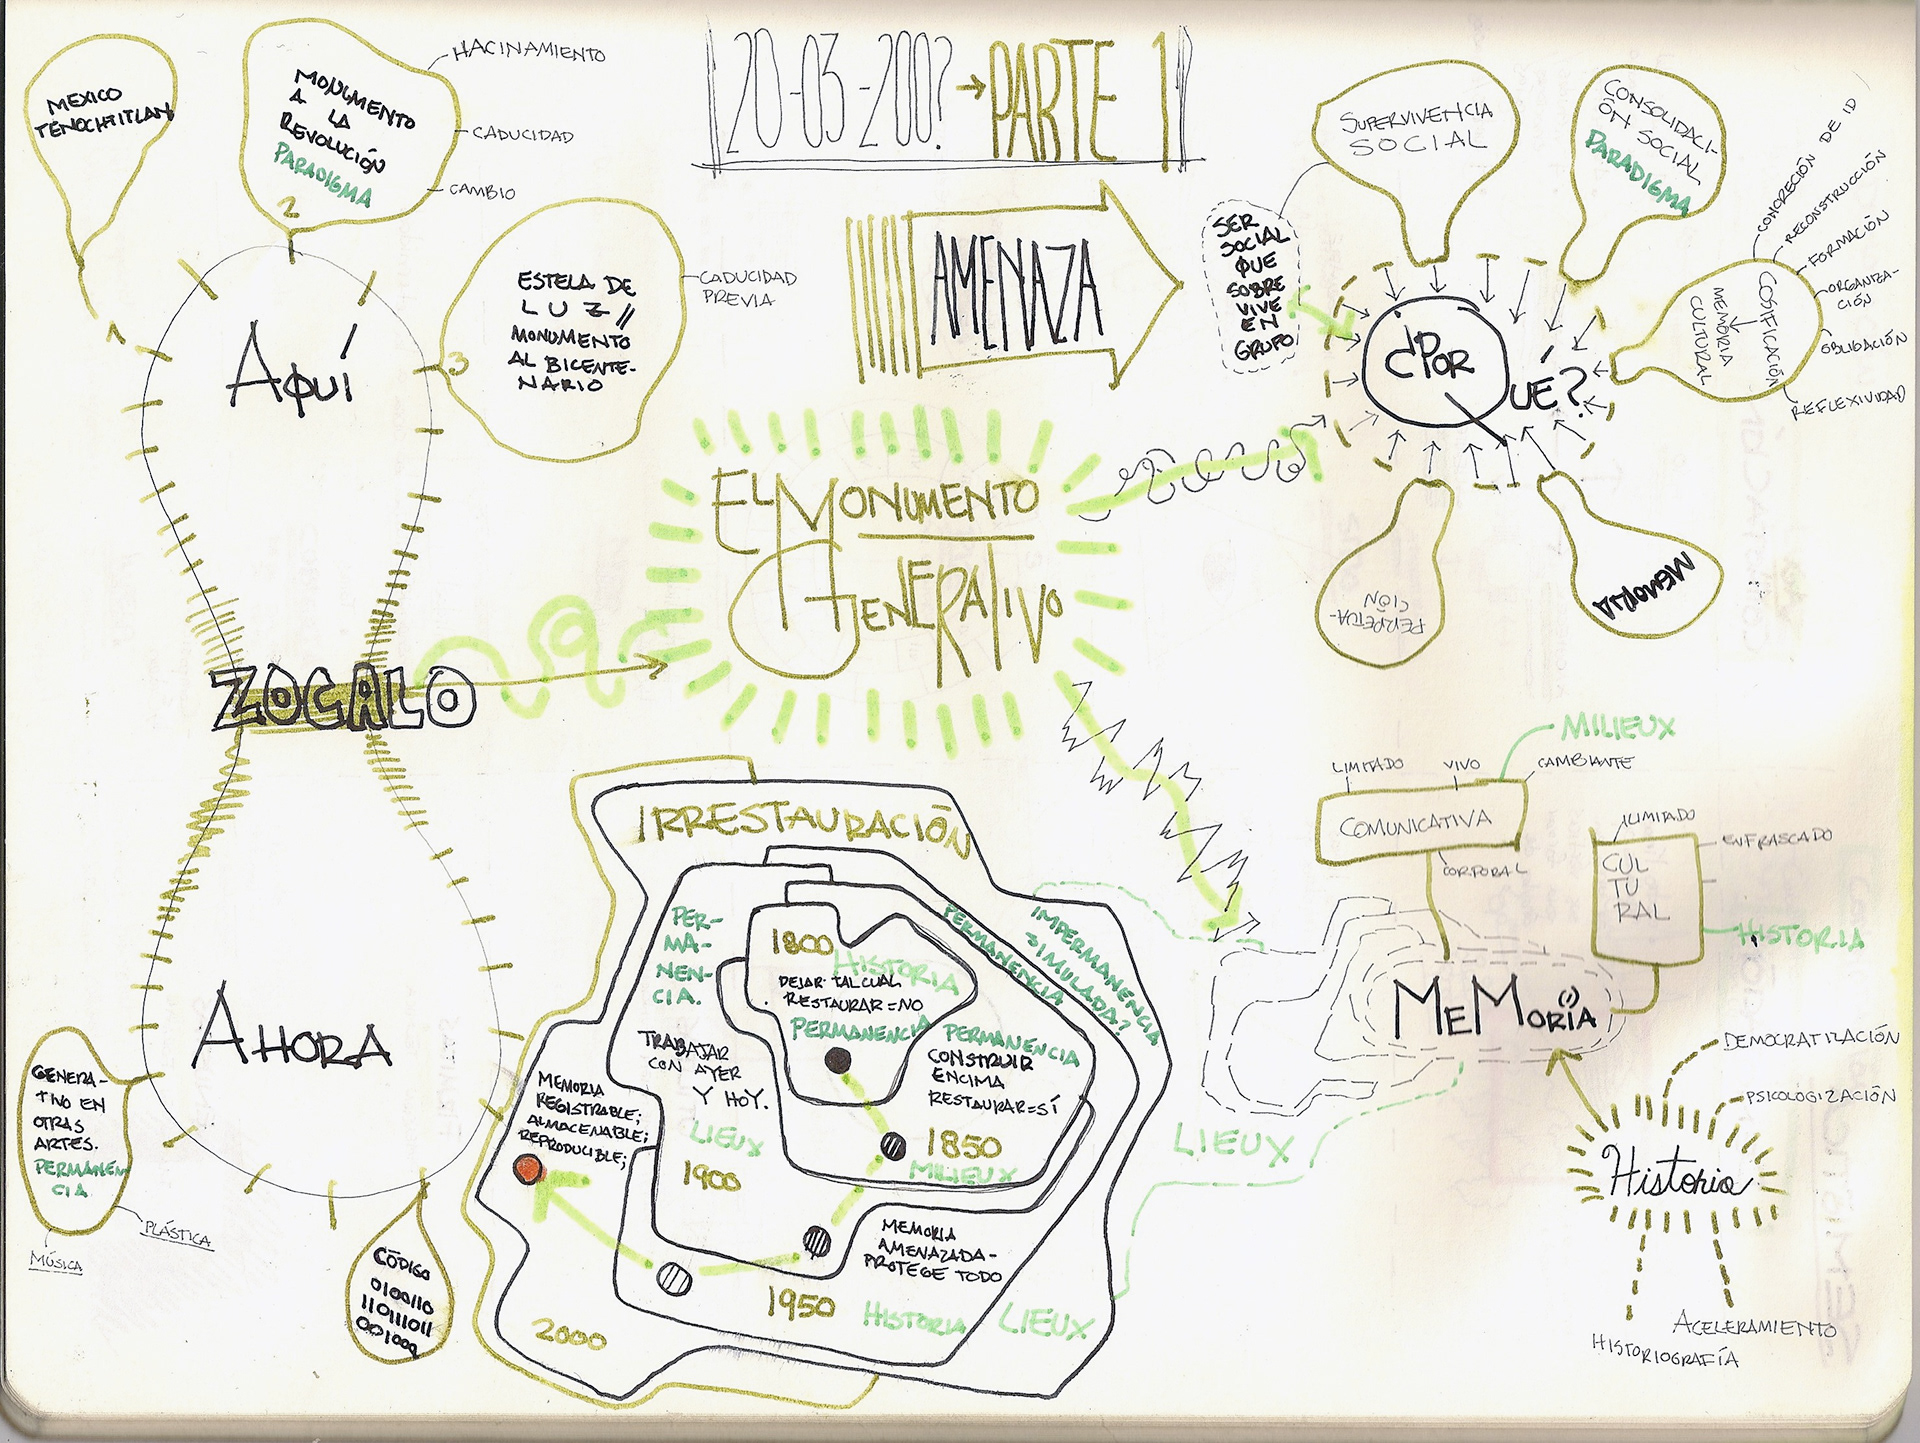 20-03-200? → PARTE 1
MEXICO
TENOCHTITLAN
1
MONUMENTO
A LA
REVOLUCIÓN
PARADIGMA
2
HACINAMIENTO
CADUCIDAD
CAMBIO
ESTELA DE
LUZ //
MONUMENTO
AL BICENTE-
NARIO
3
CADUCIDAD
PREVIA
AQUÍ
ZOCALO
AHORA
GENERA-
TIVO EN
OTRAS
ARTES.
PERMANEN
CIA
PLÁSTICA
MÚSICA
CÓDIGO
0100110
11011011
001000
AMENAZA
EL MONUMENTO
GENERATIVO
SUPERVIVENCIA
SOCIAL
SER
SOCIAL
QUE
SOBRE
VIVE
EN
GRUPO
CONSOLIDACI-
ÓN SOCIAL
PARADIGMA
¿POR
QUÉ?
COSIFICACIÓN
MEMORIA
CULTURAL
CONCRECIÓN DE ID
RECONSTRUCCIÓN
FORMACIÓN
ORGANIZA-
CIÓN
OBLIGACIÓN
REFLEXIVIDAD
PERPETUA-
CIÓN
MEMORIA
IRRESTAURACIÓN
1800
HISTORIA
DEJAR TAL CUAL
RESTAURAR=NO
PERMANENCIA
PERMANENCIA
CONSTRUIR
ENCIMA
RESTAURAR=SÍ
1850
MILIEUX
PER-
MA-
NEN-
CIA.
TRABAJAR
CON AYER
Y HOY.
LIEUX
1900
PERMANENCIA
MEMORIA
AMENAZADA-
PROTEGE TODO
1950
HISTORIA
LIEUX
IMPERMANENCIA
SIMULADA?
MEMORIA
REGISTRABLE;
ALMACENABLE;
REPRODUCIBLE;
2000
MILIEUX
LIMITADO
VIVO
CAMBIANTE
COMUNICATIVA
CORPORAL
ILIMITADO
ENFRASCADO
CUL
TU
RAL
HISTORIA
MEMORIA
LIEUX
DEMOCRATIZACIÓN
PSICOLOGIZACIÓN
Historia
ACELERAMIENTO
HISTORIOGRAFÍA